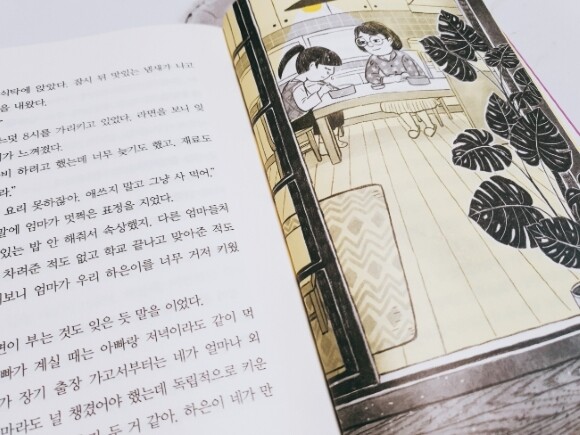 식탁에 앉았다. 잠시 뒤 맛있는 냄새가 나고
을 내왔다.
8시를 가리키고 있었다. 라면을 보니 잊
가 느껴졌다.
하려고 했는데 너무 늦기도 했고, 재료도
라."
요리 못하잖아. 애쓰지 말고 그냥 사 먹어."
말에 엄마가 멋쩍은 표정을 지었다.
있는 밥 안 해줘서 속상했지. 다른 엄마들처
차려준 적도 없고 학교 끝나고 맞아준 적도
보니 엄마가 우리 하은이를 너무 거저 키웠
면이 부는 것도 잊은 듯 말을 이었다.
빠가 계실 때는 아빠랑 저녁이라도 같이 먹
가 장기 출장 가고서부터는 네가 얼마나 외
마라도 널 챙겼어야 했는데 독립적으로 키운
둔 거 같아. 하은이 네가 만